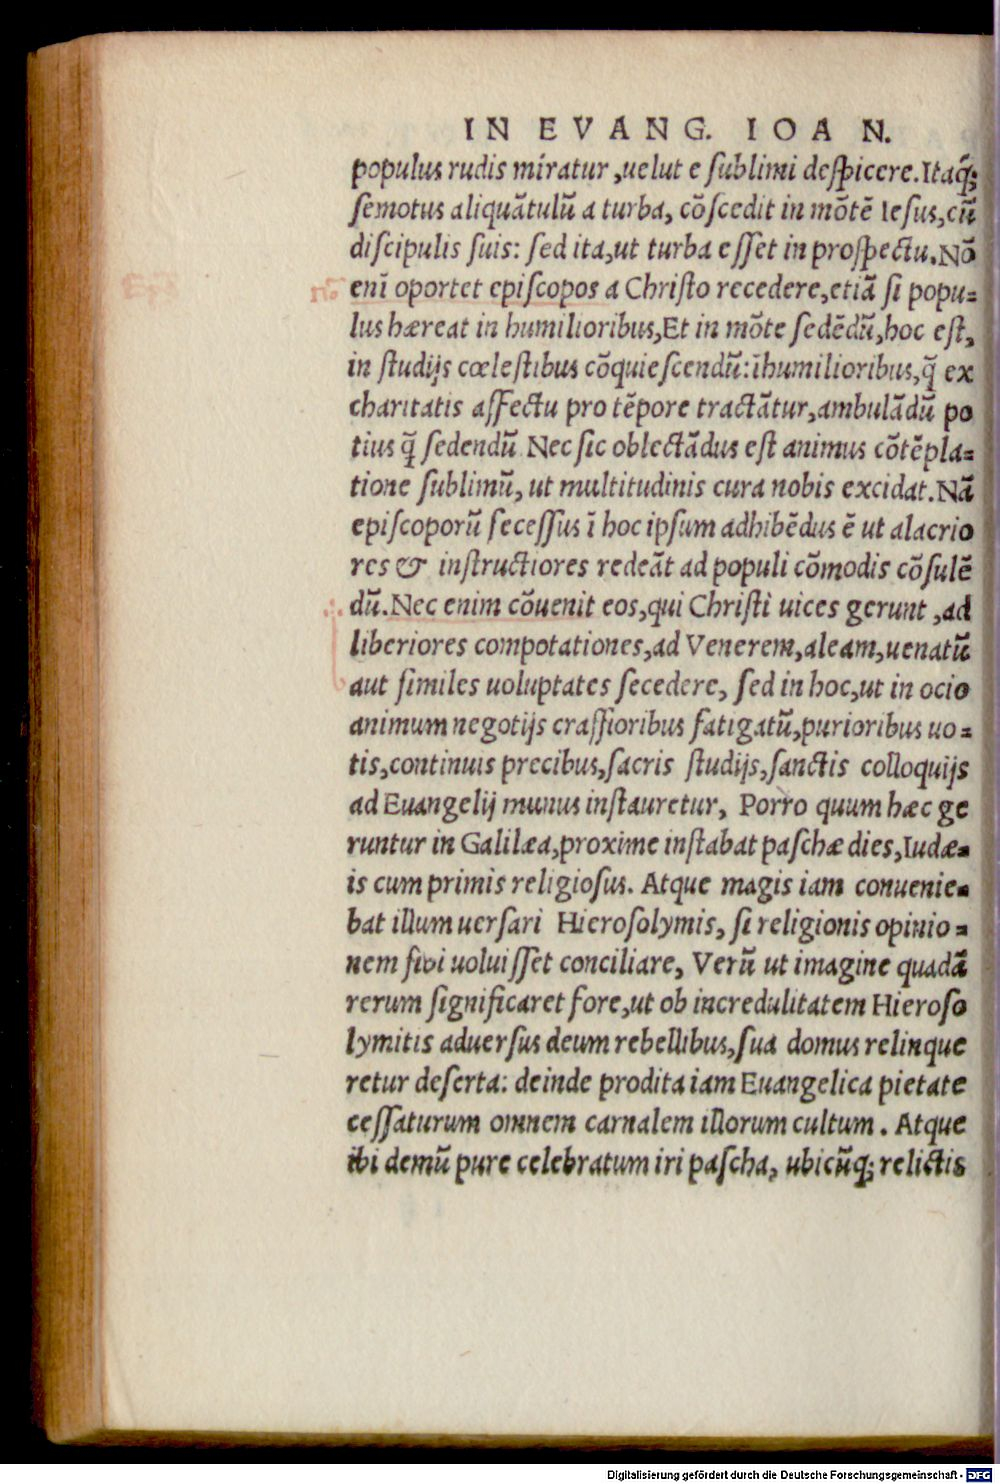 IN EVANG. IOAN.
populus rudis miratur, uelut e ſublimi deſpicere. Itaq̃;
ſemotus aliquãtulũ a turba, cõſcedit in mõtẽ Ieſus, cũ
diſcipulis ſuis: ſed ita, ut turba eſſet in proſpectu. Nõ
enĩ oportet epiſcopos a Chriſto recedere, etiã ſi popu=
lus hæreat in humilioribus, Et in mõte ſedẽdũ, hoc eſt,
in ſtudijs cœleſtibus cõquieſcendũ: ĩ humilioribus, q̃ ex
charitatis affectu pro tẽpore tractãtur, ambulãdũ po
tius q̃ ſedendũ. Nec ſic oblectãdus eſt animus cõtẽpla=
tione ſublimũ, ut multitudinis cura nobis excidat. Nã
epiſcoporũ ſeceſſus ĩ hoc ipſum adhibẽdus ẽ ut alacrio
res & inſtructiores redeãt ad populi cõmodis cõſulẽ
dũ. Nec enim cõuenit eos, qui Chriſti uices gerunt, ad
liberiores compotationes, ad Venerem, aleam, uenatũ
aut ſimiles uoluptates ſecedere, ſed in hoc, ut in ocio
animum negotijs craſſioribus fatigatũ, purioribus uo=
tis, continuis precibus, ſacris ſtudijs, ſanctis colloquijs
ad Euangelij munus inſtauretur, Porro quum hæc ge
runtur in Galilæa, proxime inſtabat paſchæ dies, Iudæ=
is cum primis religioſus. Atque magis iam conuenie=
bat illum uerſari Hieroſolymis, ſi religionis opinio=
nem ſibi uoluiſſet conciliare, Verũ ut imagine quadã
rerum ſignificaret fore, ut ob incredulitatem Hieroſo
lymitis aduerſus deum rebellibus, ſua domus relinque
retur deſerta: deinde prodita iam Euangelica pietate
ceſſaturum omnem carnalem illorum cultum. Atque
ibi demũ pure celebratum iri paſcha, ubicũq; relictis
Digitalisierung gefördert durch die Deutsche Forschungsgemeinschaft - DFG